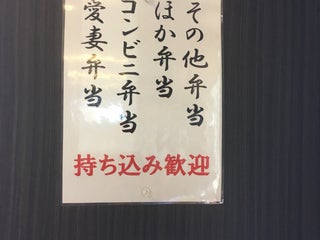 愛妻弁当
コンビニ弁当
ほか弁当
その他弁当
持ち込み歓迎